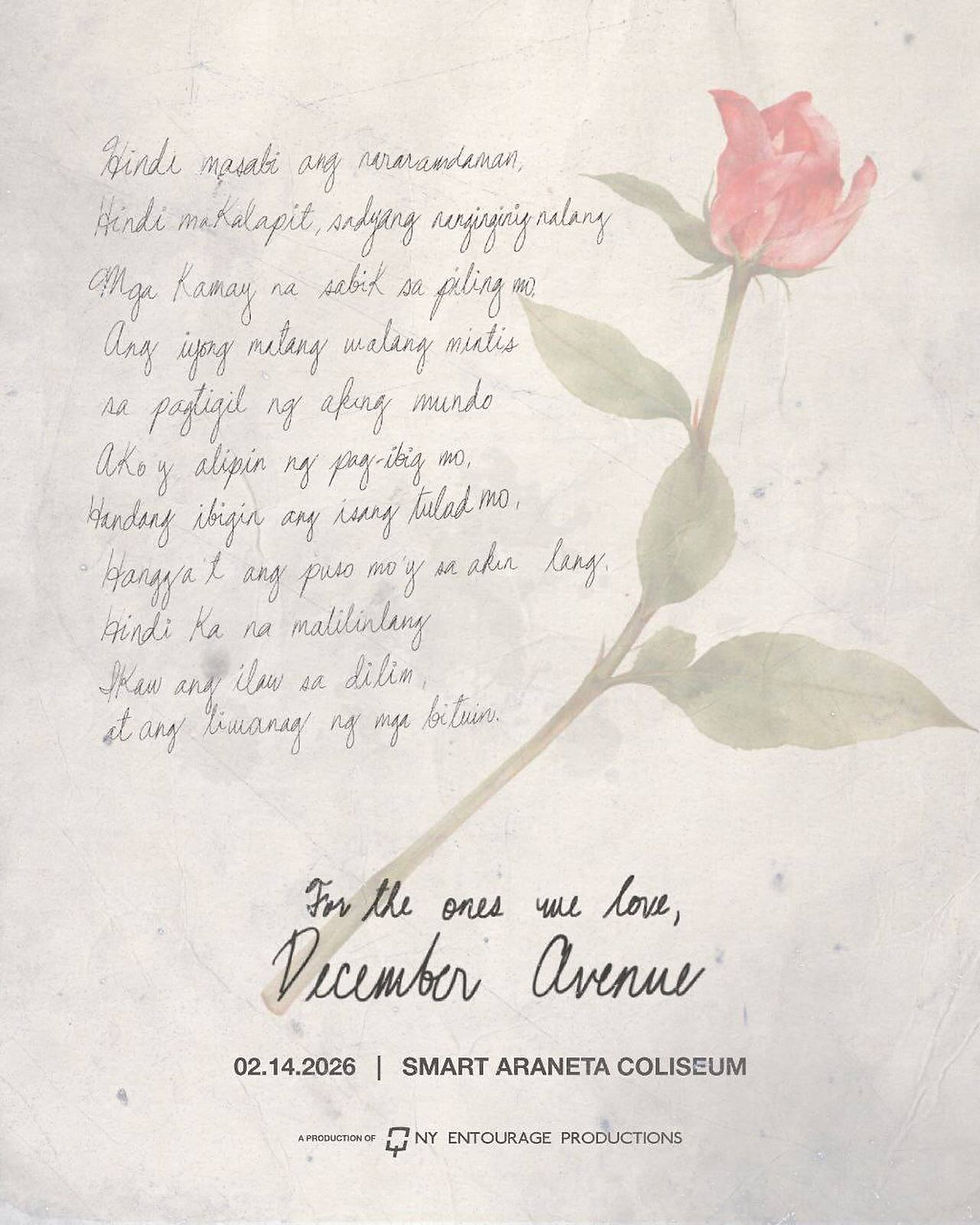 Hindi masabi ang nararamdaman,
Hindi makalapit, sadyang nanginginig nalang
Mga kamay na sabik sa piling mo.
Ang iyong matang walang mintis
sa pagtigil ng aking mundo
Ako'y alipin ng pag-ibig mo,
Handang ibigin ang isang tulad mo,
Hangga't ang puso mo'y sa akin lang,
Hindi ka na malilinlang
Ikaw ang ilaw sa dilim,
at ang liwanag ng mga bituin.
For the ones we love,
December Avenue
02.14.2026 | SMART ARANETA COLISEUM
A PRODUCTION OF NY ENTOURAGE PRODUCTIONS